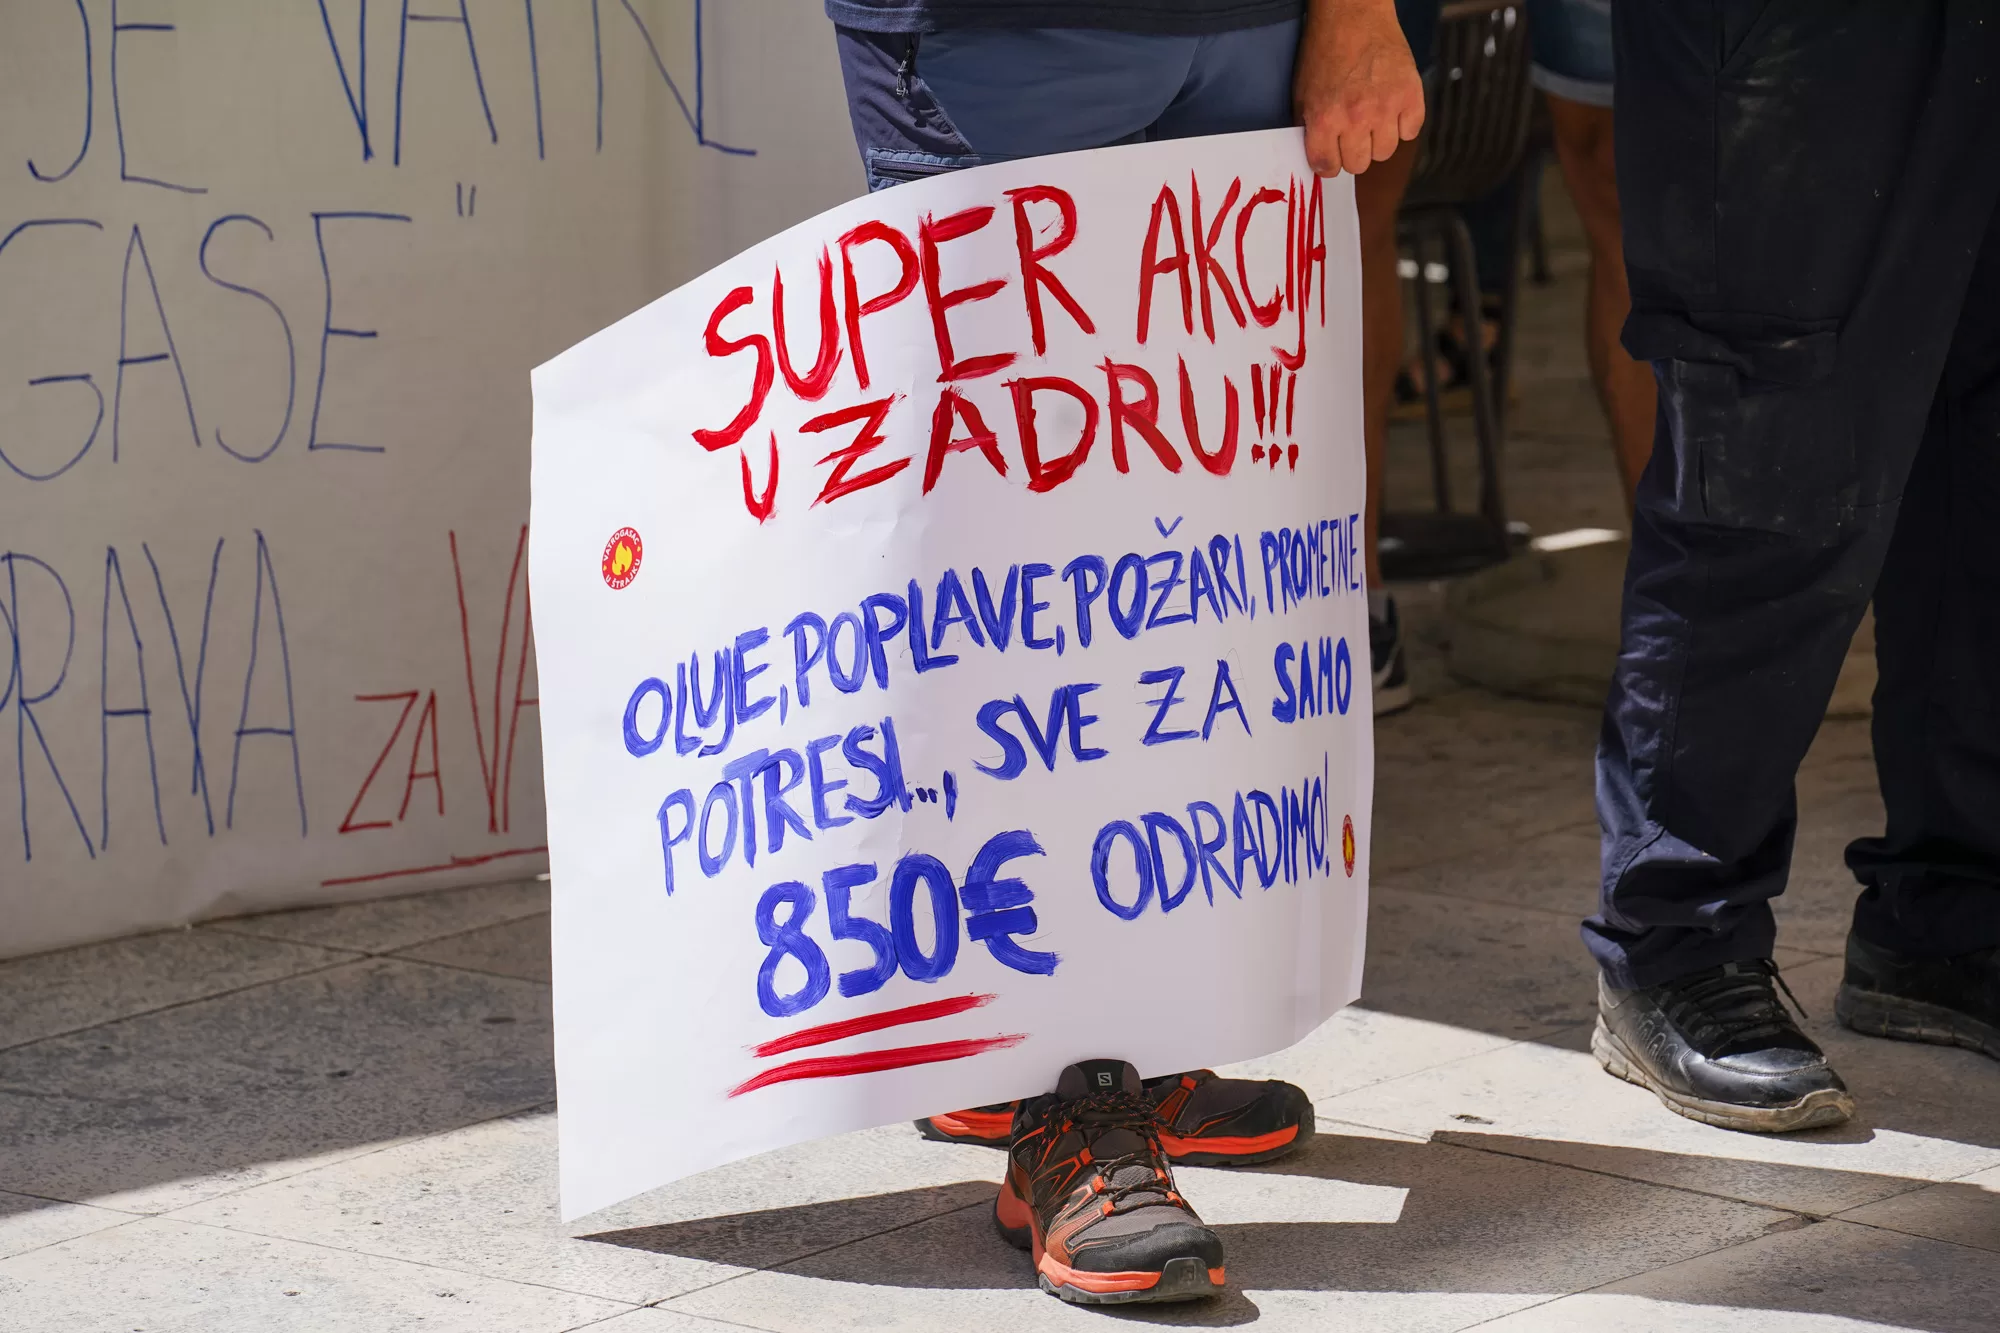 JE VATR
GASE"
PRAVA ZA VA
SUPER AKCIJA
U ZADRU!!!
VATROGASAC
U ŠTRAJKU
OLUJE, POPLAVE, POŽARI, PROMETNE,
POTRESI..., SVE ZA SAMO
850€ ODRADIMO!
S